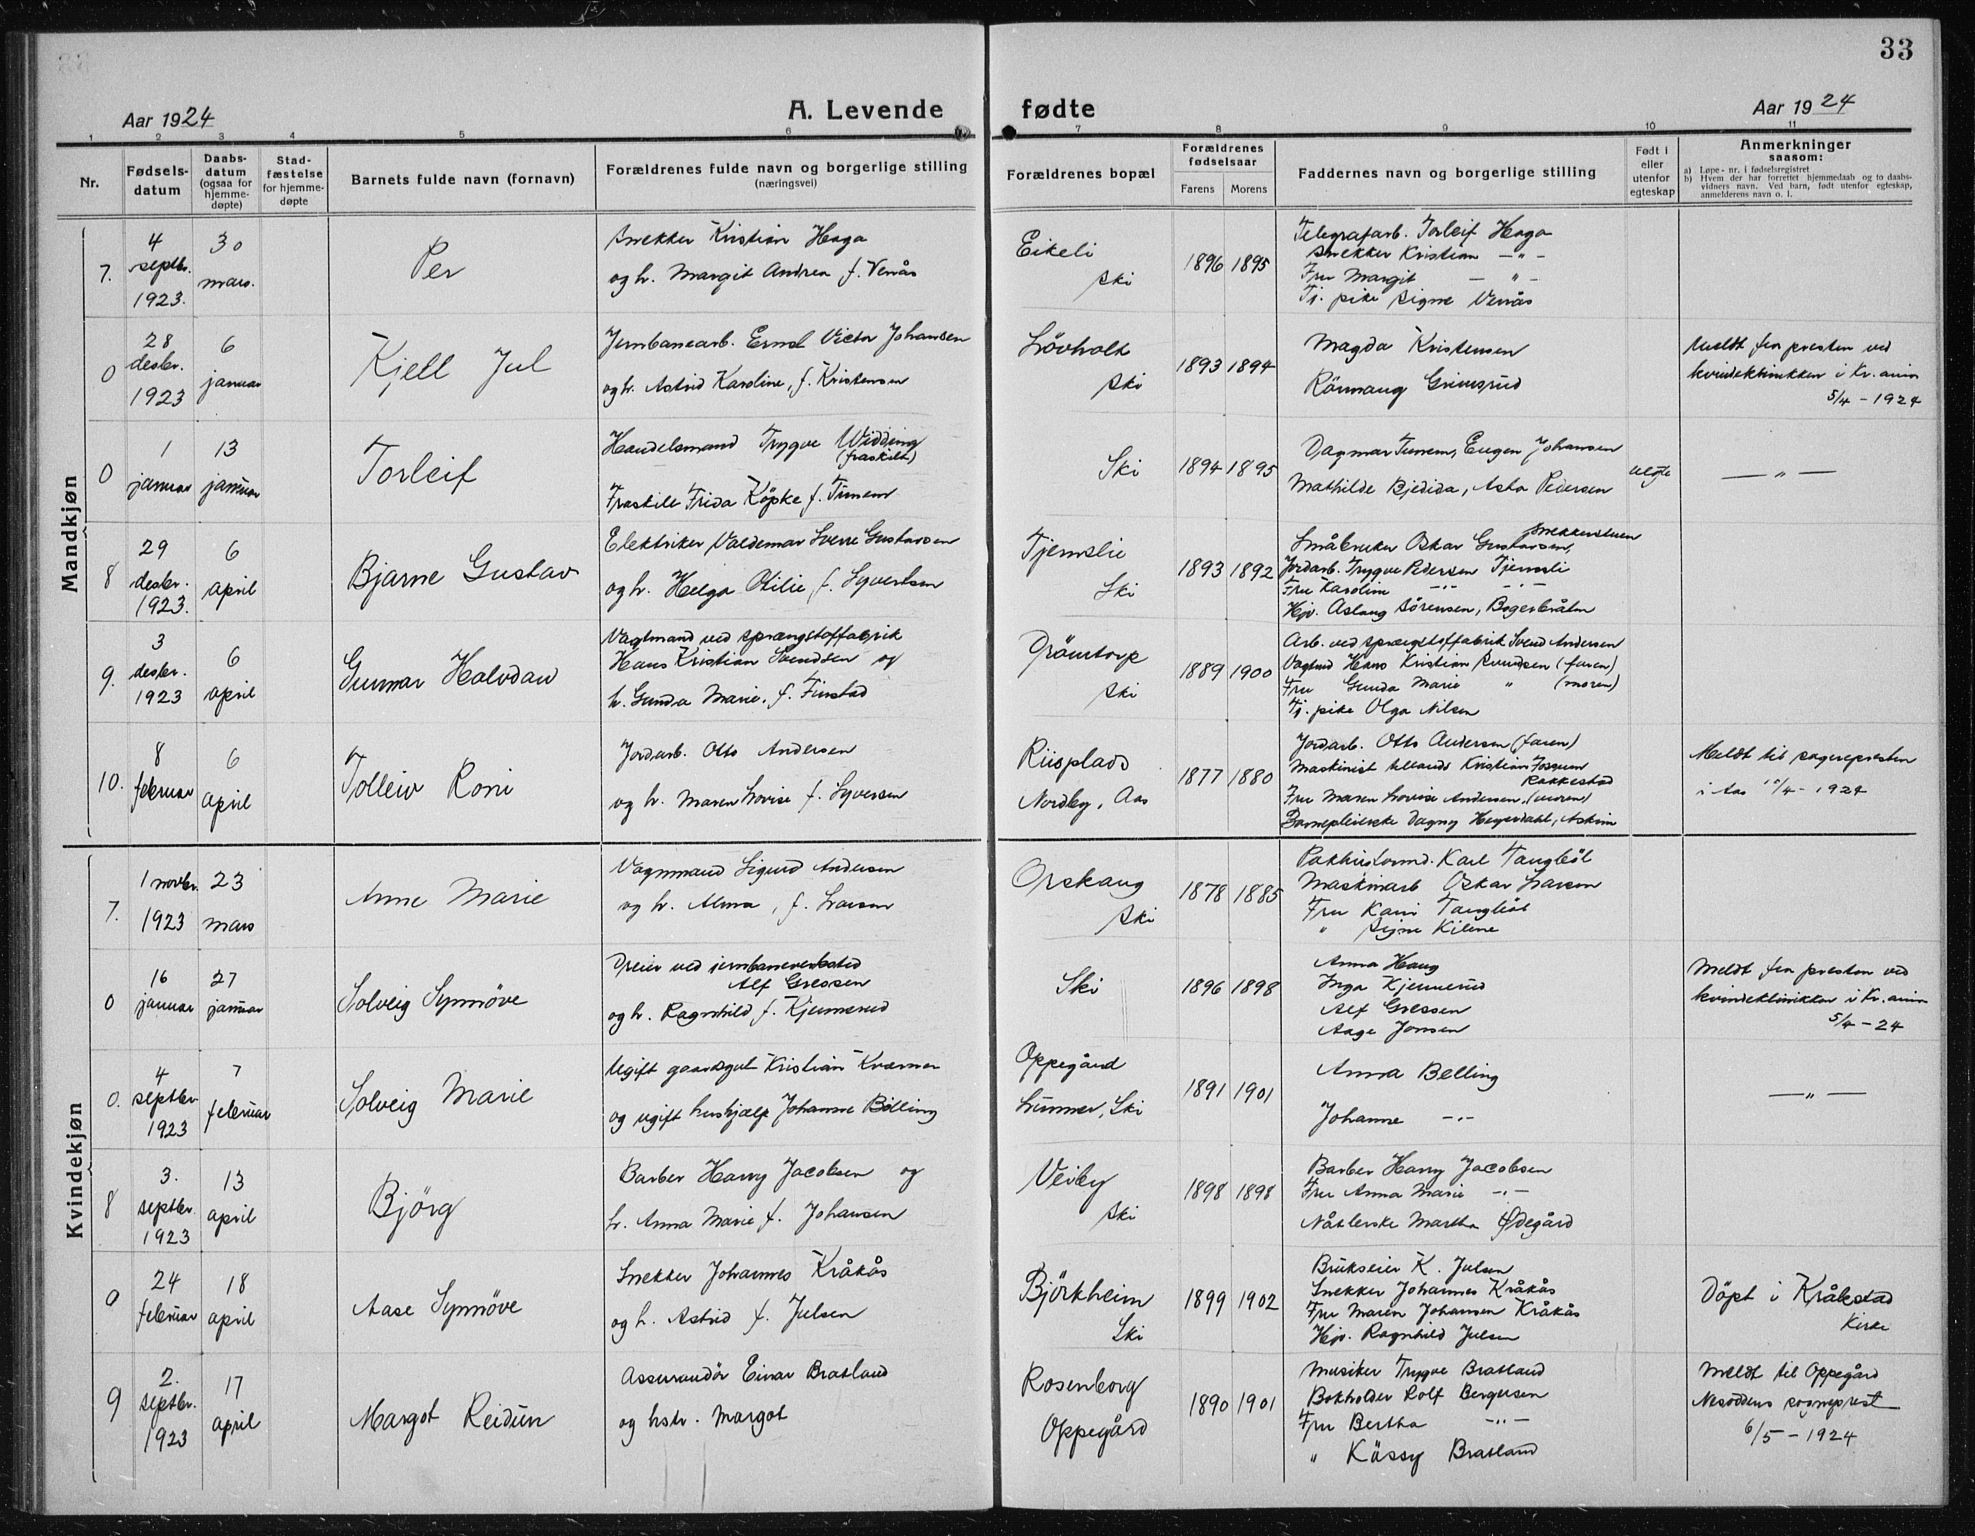 33
Aar 1924
A. Levende
fødte
Aar 1924
1 2 3 4 5 6 7 8 9 10 11
Nr.
Fødsels-
datum
Daabs-
datum
(ogsaa for
hjemme-
døpte)
Stad-
fæstelse
for hjemme-
døpte
Barnets fulde navn (fornavn)
Forældrenes fulde navn og borgerlige stilling
(næringsvei)
Forældrenes bopæl
Forældrenes
fødselsaar
Farens
Morens
Faddernes navn og borgerlige stilling
Født i
eller
utenfor
egteskap
Anmerkninger
saasom:
a) Løpe-nr. i fødselsregistret
b) Hvem der har forrettet hjemmedaab og to daabs-
vidners navn. Ved barn, født utenfor egteskap,
anmelderens navn o. l.
Mandkjøn
7.
4
septbr.
1923.
30
mars.
Per
Snekker Kristian Haga
og h. Margit Andrea f. Venås
Eikeli
Ski
1896 1895
Telegrafarb. Torleif Haga
Snekker Kristian — " —
Fru Margit — " —
Tj. pike Signe Venås
0
28
desbr.
1923
6
januar
Kjell Jul
Jernbanearb. Ernst Victor Johansen
og h. Astrid Karoline, f. Kristensen
Lövholt
Ski
1893 1894
Magda Kristensen
Rönnaug Grimsrud
Meldt fra presten ved
kvindeklinikken i Kr.ania
5/4 - 1924
0
1
januar
13
januar
Torleif
Handelsmand Trygve Widding
(fraskilt)
Fraskilt Frida Köpke f. Tunem
Ski
1894 1895
Dagmar Tunem, Eugen Johansen
Mathilde Bjedida, Asta Pedersen
uegte
— " —
8
29
desbr.
1923.
6
april
Bjarne Gustav
Elektriker Valdemar Sverre Gustavsen
og h. Helga Otilie, f. Syvertsen
Tjemslie
Ski
1893 1892
Småbruker Oskar Gustavsen, Snekkerstuen
Jordarb. Trygve Pedersen Tjemsli
Fru Karoline —"— —"—
Hjv. Aslaug Sörensen, Bøgerbråten
9.
3
desbr.
1923
6
april
Gunnar Halvdan
Vagtmand ved sprængstoffabrik
Hans Kristian Svendsen og
h. Gunda Marie, f. Finstad
Drömtorp
Ski
1889 1900
Arb. ved sprængstoffabrik Svend Andersen
Vagtmd Hans Kristian Svendsen (faren)
Fru Gunda Marie " (moren)
Tj. pike Olga Nilsen
10.
8
februar
6
april
Tolleiv Roni
Jordarb. Otto Andersen
og h. Maren Lovise f. Syversen
Riisplads
Nordby, Aas
1877 1880
Jordarb. Otto Andersen (faren)
Maskinist Kristian
Rakkestad
Fru Maren Lovise Andersen, (moren)
Barnepleierske Dagny Hegerdahl, Askim
Meldt til sognepresten
i Aas 10/4 - 1924
Kvindekjøn
7.
1 novbr.
1923
23
mars
Anne Marie
Vognmand Sigurd Andersen
og h. Alma, f. Larsen
Orskaug
Ski
1878 1885
Pakhusformd. Karl Tangböl
Maskinarb Oskar Larsen
Fru Kari Tangböl
" Signe Kilene
0
16
januar
27
januar
Solveig Synnöve
Dreier ved jernbaneverksted
Alf Gressen
og h. Ragnhild f. Kjennerud
Ski
1896 1898
Anna Haug
Inga Kjennerud
Alf Gressen
Aage Jonsen
Meldt fra presten ved
kvindeklinikken i Kr.ania
5/4 - 24
0.
4
septbr
1923
7
februar
Solveig Marie
Ugift gaardsgut Kristian Kværner
og ugift hushjælp Johanne Bölling
Oppegård
Ski
1891 1901
Anna Belling
Johanne —"—
— " —
8
3.
septbr.
1923
13
april
Björg
Barber Harry Jacobsen og
h. Anna Marie f. Johansen
Veiby
Ski
1898 1898
Barber Harry Jacobsen
Fru Anna Marie —"—
Nåtlerske Martha Ødegård
9
24
februar
18
april
Aase Synnöve
Snekker Johannes Kråkås
og h. Astrid f. Julsen
Björkheim
Ski
1899 1902
Brukseier K. Julsen
Snekker Johannes Kråkås
Fru Maren Johansen Kråkås
Hjv. Ragnhild Julsen
Döpt i Kråkstad
Kirke
9
2.
septbr.
1923
17
april
Margot Reidun
Assurandör Einar Bratland
og hstr. Margot
Rosenborg
Oppegård
1890 1901
Musiker Trygve Bratland
Bokholder Rolf Bergersen
Fru Bertha —"—
" Kässy Bratland
Meldt til Oppegård
Nesoddens sogneprest
6/5 - 1924